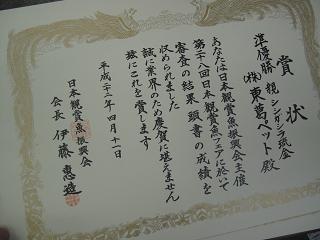 賞状
準優勝 親 シンガシラ琉金
(株)東葛ペット殿
あなたは日本観賞魚振興会主催
第二十八回日本観賞魚フェアに於いて
審査の結果頭書の成績を
収められました
誠に業界のため慶賀に堪えません
茲にこれを賞します
平成二十二年四月十一日
日本観賞魚振興会
会長 伊藤惠造